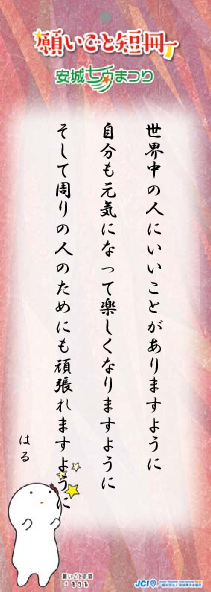 願いごと短冊
安城七夕まつり
世界中の人にいいことがありますように
自分も元気になって楽しくなりますように
そして周りの人のためにも頑張れますように
はる
願いごと短冊
JCI